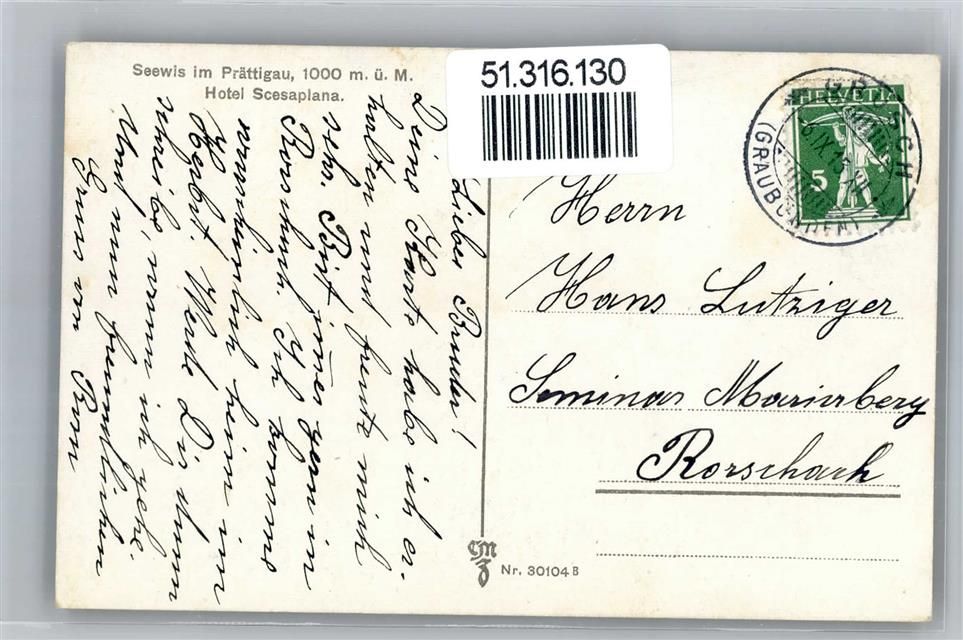 Seewis im Prättigau, 1000 m. ü. M.
Hotel Scesaplana.
51.316.130
HELVETIA
5
GRÜSCH
(GRAUBÜNDEN)
Lieber Bruder!
Deine Karte habe ich er-
halten und freute mich
sehr. Bist immer gern in
Rorschach. Ich komme
wahrscheinlich heim im
Herbst. Werde Dir dann
schreiben, wenn ich gehe.
Und nun freundlichen
Gruss von
Herrn
Hans Lutziger
Seminar Mariaberg
Rorschach
Nr. 30104 B